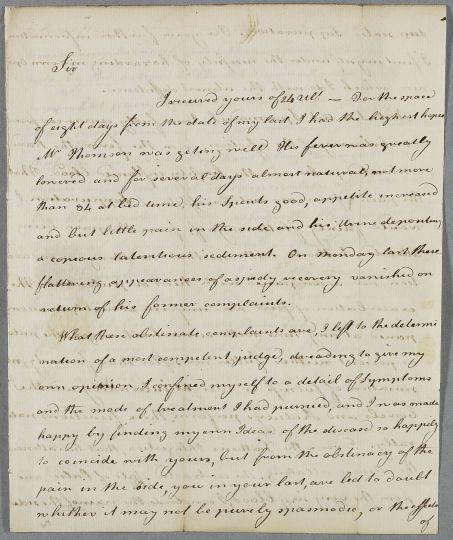 Sir
I received yours of 24 Ult. — For the space
of eight days from the date of my last I had the highest hopes
Mr Thomson was geting well. His fever was greatly
lowered and for several days almost natural, not more
than 84 at bed time, his Spirits good, appetite increased
and but little pain in the side and his Urine depositing
a copious latentious sediment. On Monday last these
flattering appearances of a speedy recovery vanished on
return of his former complaints.
What these obstinate complaints are, I left to the determi
nation of a most competent judge, dreading to give my
own opinion, I confined myself to a detail of symptoms
and the mode of treatment I had pursued, and I was made
happy by finding my own Ideas of the disease so happily
to coincide with yours, but from the obstinacy of the
pain in the side, you in your last, are led to doubt
whether it may not be purely spasmodic, or the effects
of